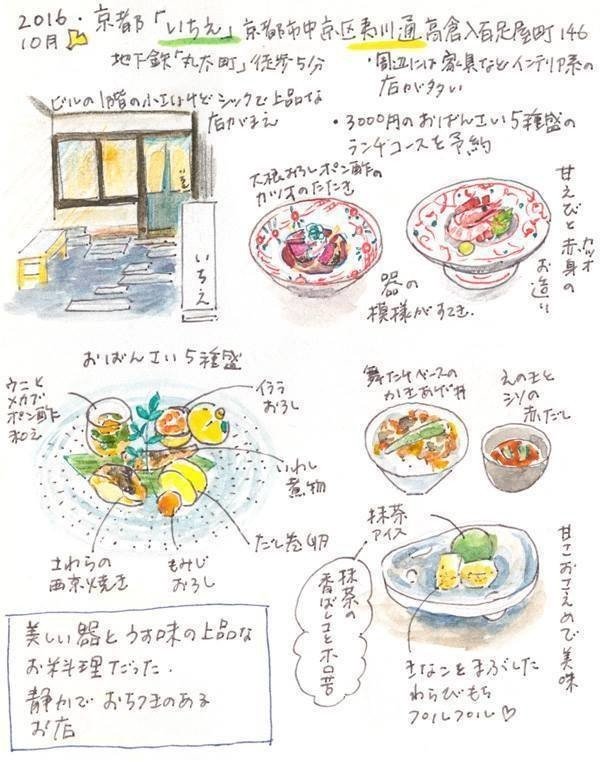 2016.京都「いちえ」京都市中京区夷川通高倉入百足屋町146
10月
地下鉄「丸太町」徒歩5分
・周辺には家具などインテリア系の
店が多い
ビルの1階の小さいけどシックで上品な
店がまえ
・3000円のおばんさい5種盛の
ランチコースを予約
いちえ
大根おろしポン酢の
カツオのたたき
甘えびと赤身の
カツオ
お造り
器の
模様がすてき.
おばんさい5種盛
ウニと
メカブ
ポン酢
和え
イクラ
おろし
いわし
煮物
だし巻卵
もみじ
おろし
さわらの
西京焼き
舞たけベースの
かきあげ丼
えのきと
シソの
赤だし
抹茶
アイス
抹茶の
香ばしさとホロ苦
甘さおさえめで美味
きなこをまぶした
わらびもち
プルプル♡
美しい器とうす味の上品な
お料理だった.
静かでおちつきのある
お店